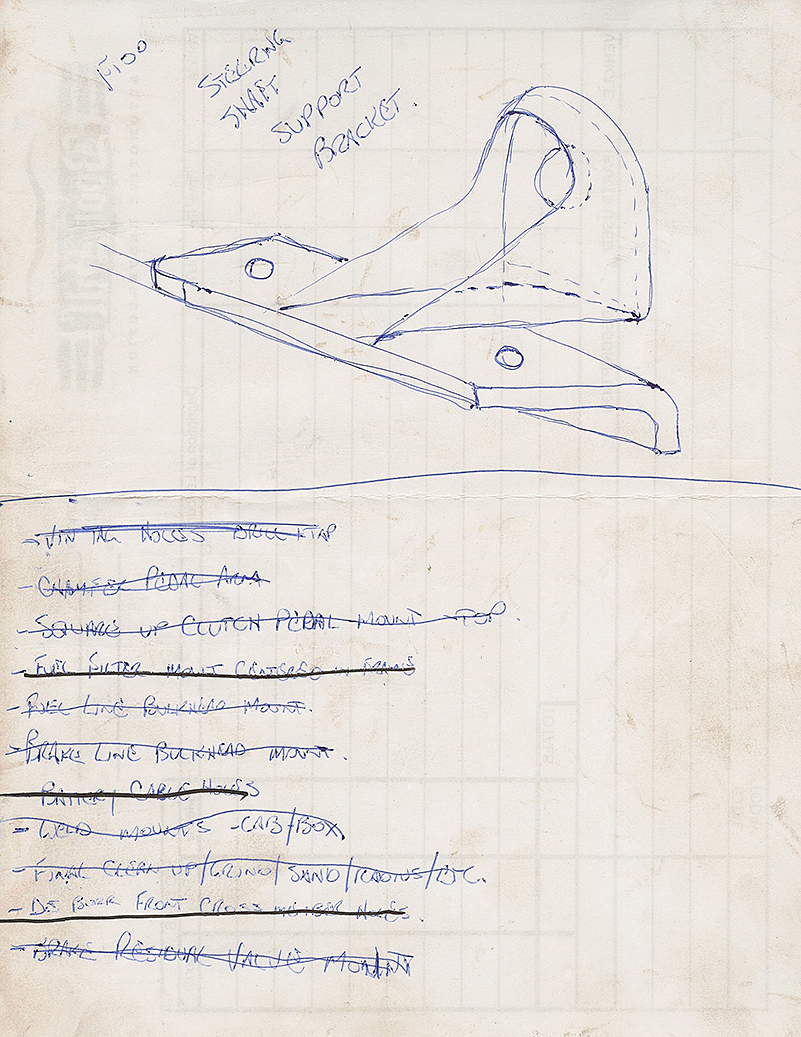 F100
STEERING
SHAFT
SUPPORT
BRACKET.
- VIN TAG HOLES DRILL + TAP
- CHAMFER PEDAL ARM
- SQUARE UP CLUTCH PEDAL MOUNT -TOP.
- FUEL FILTER MOUNT CENTERED IN FRAME
- FUEL LINE BULKHEAD MOUNT.
- BRAKE LINE BULKHEAD MOUNT.
- BATTERY CABLE HOLES
- WELD MOUNTS -CAB/BOX
- FINAL CLEAN UP/GRIND/SAND/RADIUS/ETC.
- DE BURR FRONT CROSS MEMBER HOLES.
- BRAKE RESIDUAL VALVE MOUNT